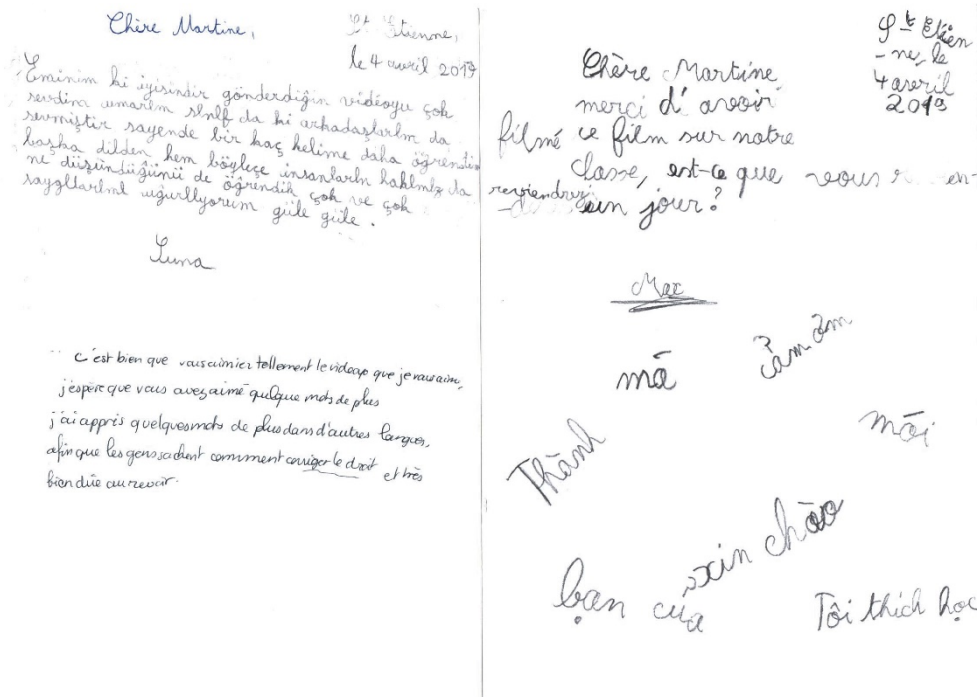 Chère Martine,
St Etienne,
le 4 avril 2019
Eminim ki iyisindir gönderdiğin vidéoyu çok
sevdim umarlm slnlf da ki arkadaşlarlm da
sevmiştir sayende bir kaç kelime daha öğrendim
başka dilden hem böyleçe insanlarln haklmlz da
ne düşündüğünü de öğrendik çok ve çok
saygllarlml uğurllyorum güle güle.
Luna
c'est bien que vous aimiez tellement le videop que je vous aim,
j'espère que vous avez aimé quelque mots de plus
j'ai appris quelques mots de plus dans d'autres langues,
afin que les gens sachent comment corriger le droit et très
bien dûe au revoir.
Ste Etien
-ne, le
4 avril
2019
Chère Martine
merci d'avoir
filmé ce film sur notre
classe, est-ce que vous
reviendrez
un jour?
Max
mā
cảm ơm
Thành
mõi
xin chào
bạn của
Tôi thích học